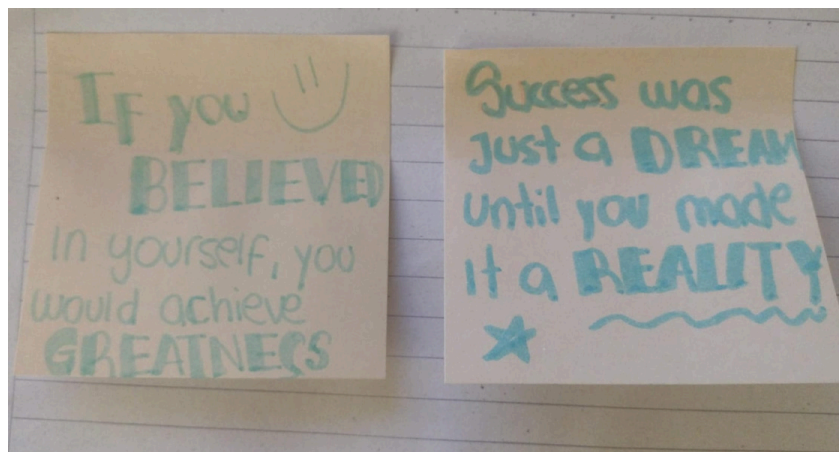 If you
BELIEVED
In yourself, you
would achieve
GREATNESS
Success was
Just a DREAM
until you made
it a REALITY